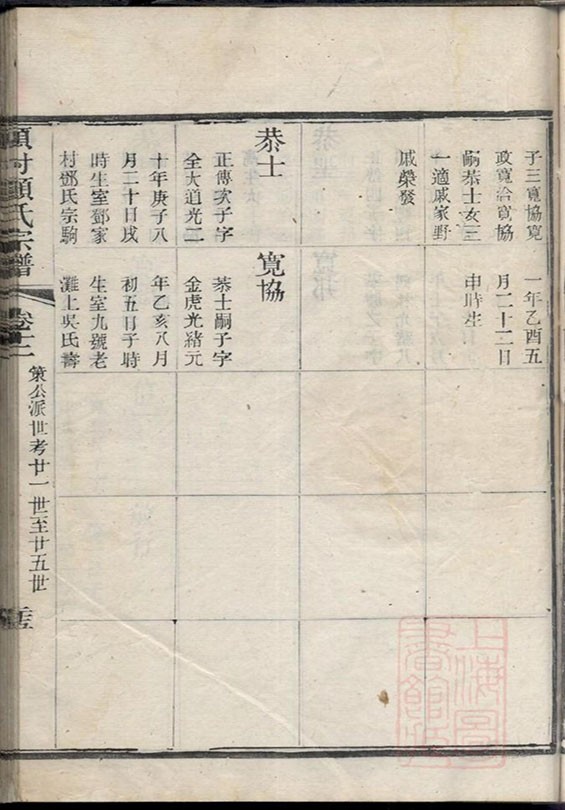 子三寬協寬
政寬洽寬協
嗣恭士女三
一適戚家野
戚榮發
恭士
正傳次子字
全大道光二
十年庚子八
月二十日戌
時生室鄧家
村鄧氏宗駒
一年乙酉五
月二十二日
申時生
寬協
恭士嗣子字
金虎光緒元
年乙亥八月
初五日子時
生室九號老
灘上吳氏壽
項村顧氏宗譜
卷十二
策公派世考廿一世至廿五世
上海圖書館藏